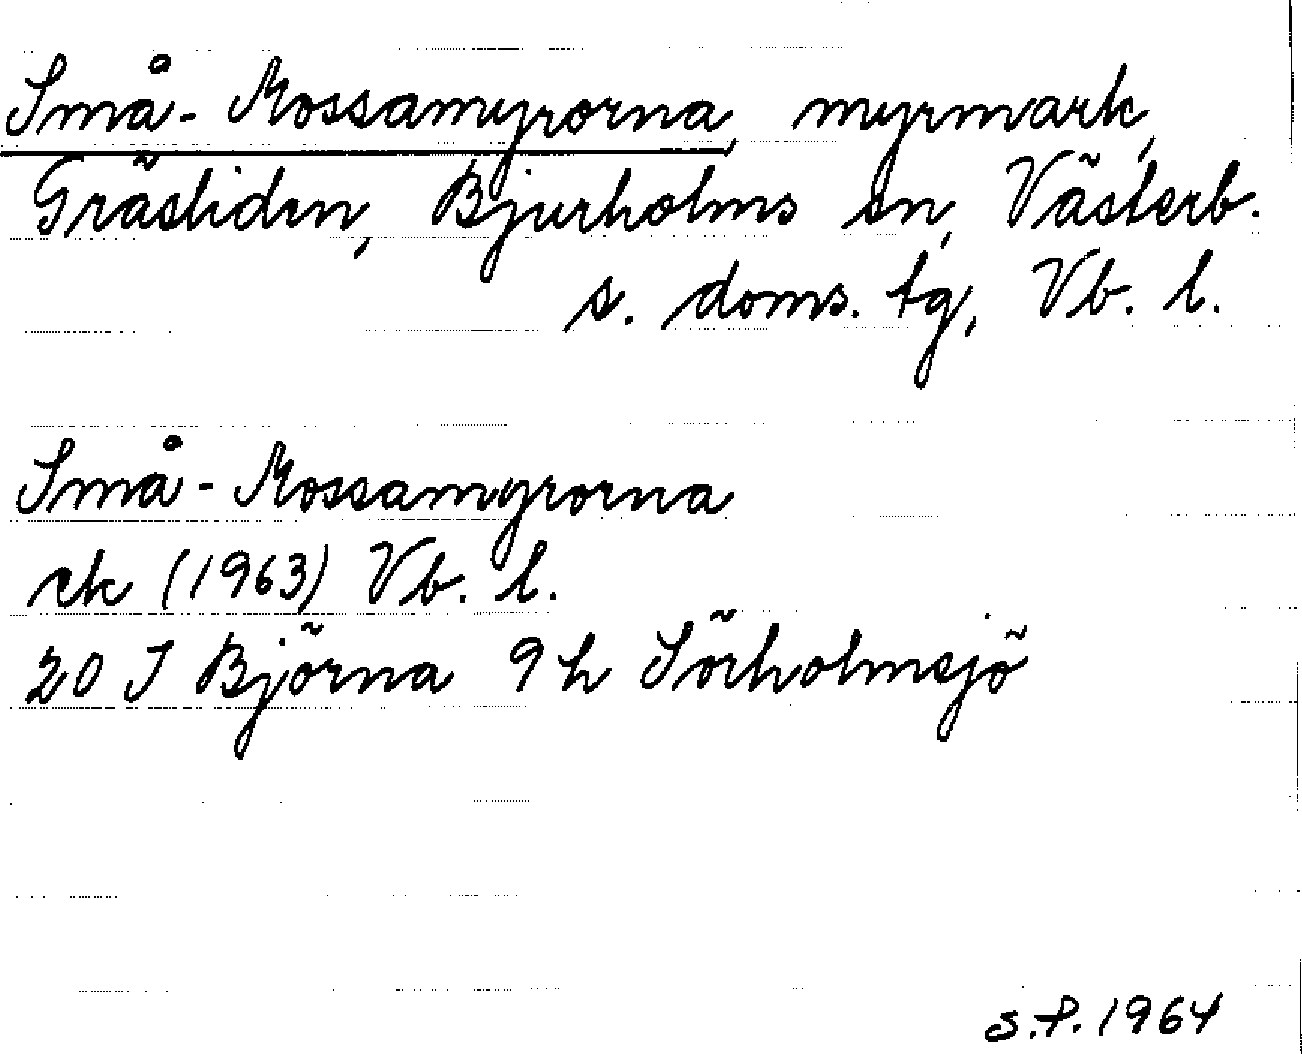 Små-Mossamyrorna, myrmark,
Gräsliden, Bjurholms sn, Västerb.
s. doms. tg, Vb. l.
Små-Mossamyrorna
rk (1963) Vb. l.
20 J Björna 9 h Sörholmsjö
S.P. 1964